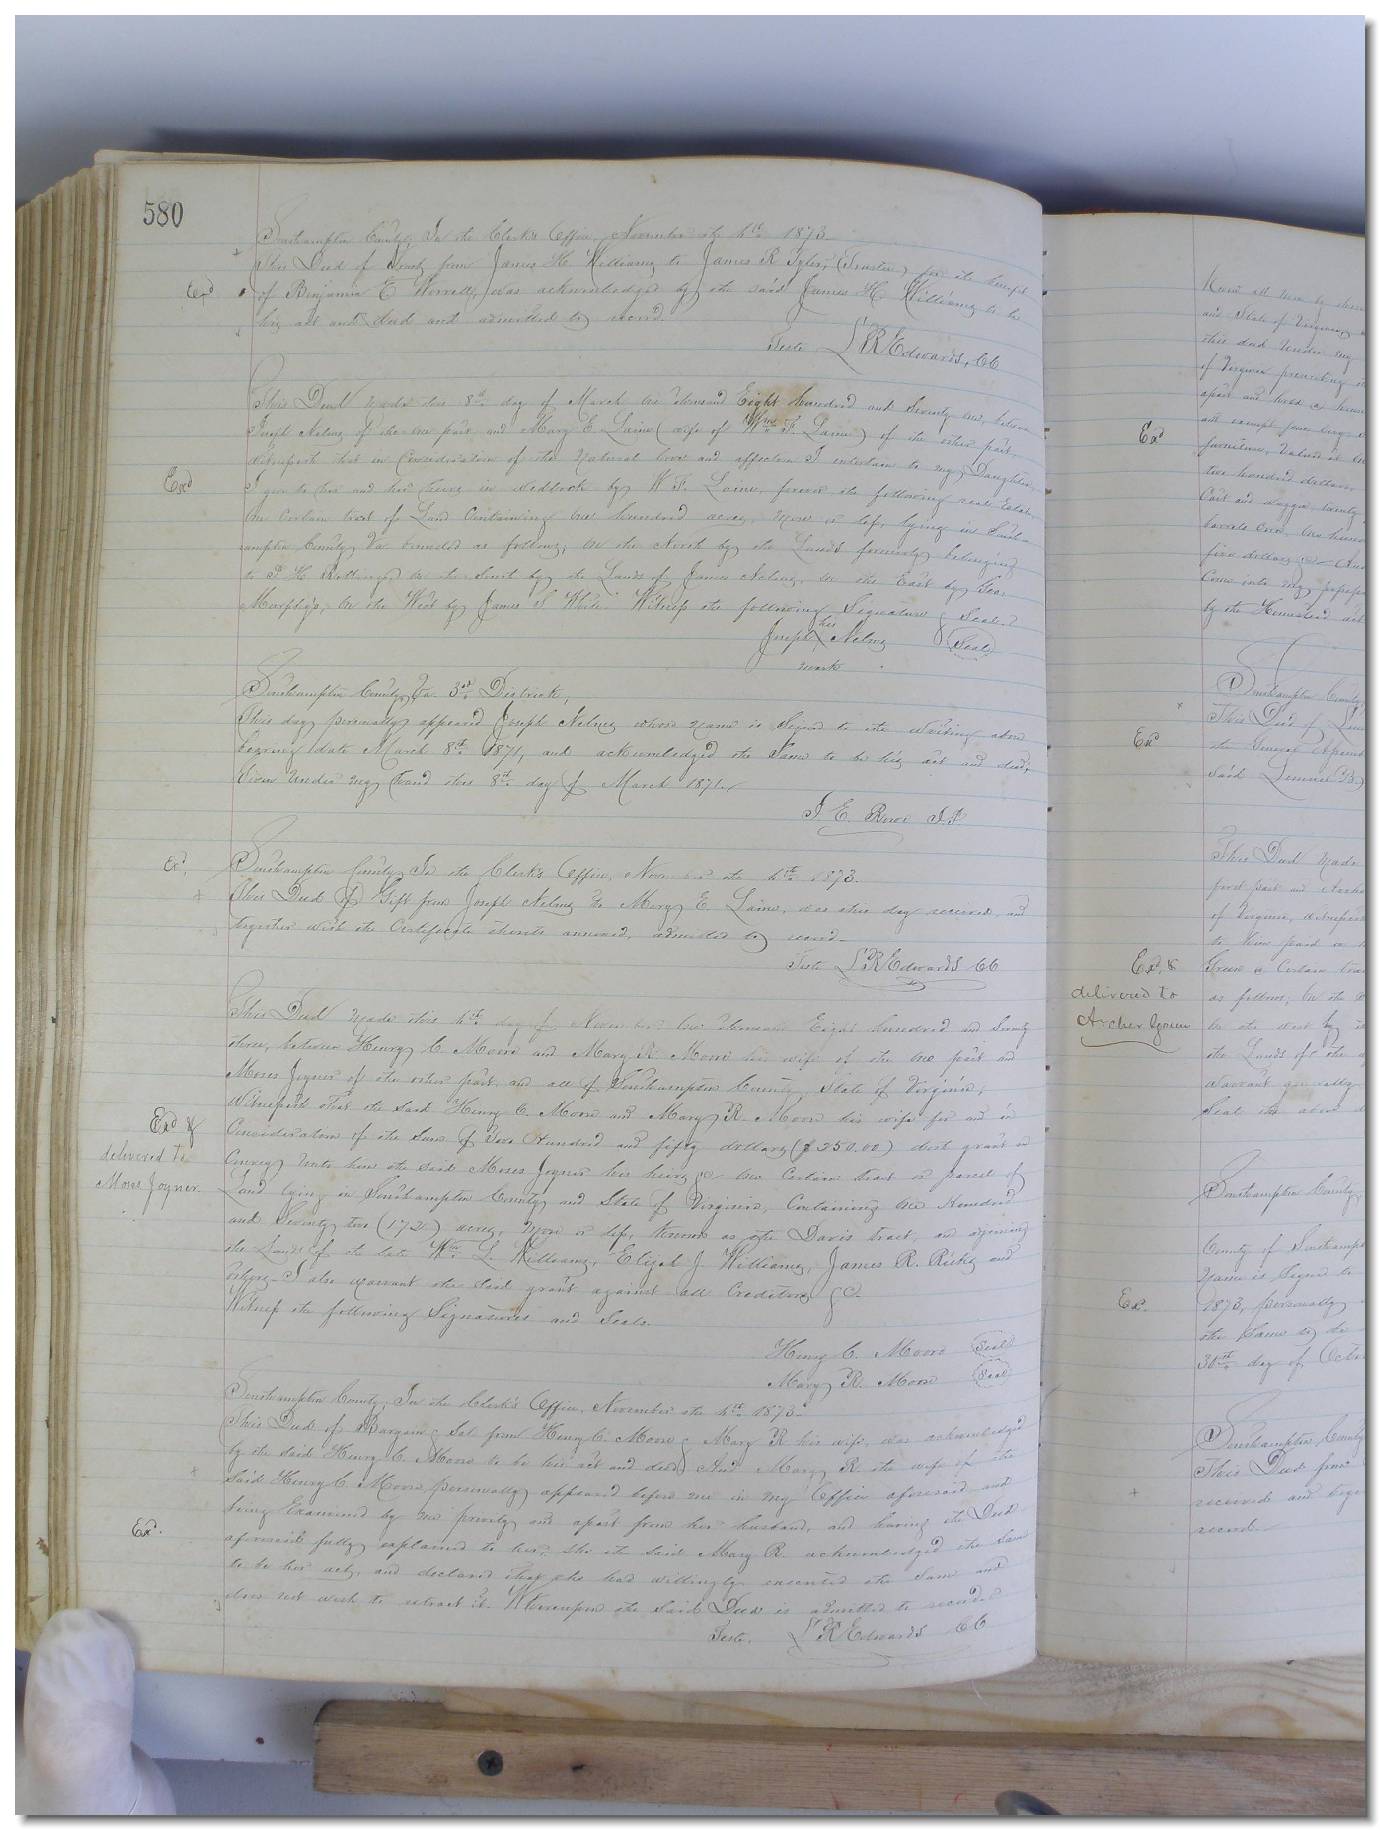 580
Southampton County, In the Clerk's Office, November the 4th 1873
This Deed of Trust from James H Williams to James R Tyler, (Trustee) for the benefit
Exd
of Benjamin E Worrell, was acknowledged by the said James H Williams to be
his act and deed and admitted to record.
Teste L R Edwards, CC
This Deed made this 8th day of March one thousand Eight hundred and Seventy one, between
Joseph Nelms of the one part and Mary E Laine (wife of Wm F. Laine) of the other part.
Witnesseth that in Consideration of the natural love and affection I entertain to my Daughter,
Exd
I give to her and her heirs in wedlock by W F. Laine, forever the following real Estate,
One Certain tract of Land Containing one hundred acres, more or less, lying in South-
ampton County Va bounded as follows, on the North by the Lands formerly belonging
to on the South by the Lands of James Nelms, on the East by Geo.
on the West by James S White. Witness the following Signature & Seal
his
Joseph X Nelms (Seal)
mark
Southampton County, Va 3rd District,
This day personally appeared Joseph Nelms whose name is signed to the writing above
bearing date March 8th 1871, and acknowledged the same to be his act and deed,
Given under my hand this 8th day of March 1871.
J E Rowe J.P.
Exd.
Southampton County, In the Clerk's Office, November the 4th 1873.
This Deed of Gift from Joseph Nelms to Mary E. Laine, was this day received, and
together with the Certificate thereto annexed, admitted to record.
Teste L R Edwards CC
This Deed made this 4th day of November One thousand Eight hundred and Seventy
three, between Henry C. Moore and Mary R. Moore his wife of the one part and
Moses Joyner of the other part, and all of Southampton County, State of Virginia,
Witnesseth that the said Henry C. Moore and Mary R. Moore his wife for and in
Exd &
delivered to
Moses Joyner.
Consideration of the Sum of Two Hundred and fifty dollars ($250.00) doth grant &
Convey unto him the said Moses Joyner his heirs &c One Certain tract or parcel of
Land lying in Southampton County and State of Virginia, Containing One Hundred
and Seventy two (172) acres, more or less, known as the Davis tract, and adjoining
the Lands of the late Wm L. Williams, Elijah J. Williams, James R. Ricks and
others. I also warrant the said grant against all Creditors &c.
Witness the following Signatures and Seals.
Henry C. Moore (Seal)
Mary R. Moore (Seal)
Southampton County, In the Clerk's Office, November the 4th 1873.
This Deed of Bargain & Sale from Henry C. Moore & Mary R his wife, was acknowledged
by the said Henry C. Moore to be his act and deed, And Mary R. the wife of the
said Henry C. Moore, personally appeared before me in my Office aforesaid and
being Examined by me privily and apart from her husband, and having the Deed
Exd.
aforesaid fully explained to her, She the said Mary R. acknowledged the same
to be her act, and declared that she had willingly executed the same and
does not wish to retract it. Whereupon the said Deed is admitted to record
Teste. L R Edwards CC
Know all men by these
and State of Virginia,
this deed under my
of Virginia
apart and
Exd
furniture, Valued at
two hundred dollars,
Cart and
barrels Corn, One hundred
five dollars
Come into my
by the Homestead
Southampton County
This Deed of
Exd
the General
said Lemuel B
This Deed made
first part and Archer
of Virginia, witnesseth
to him paid
Exd. &
delivered to
Archer Green
Green a Certain tract
as follows, On the
On the West by
the Lands of the
warrant generally
Seal the above
Southampton County
County of Southampton
name is signed to
Exd.
1873, personally
the same to be
30th day of Octo
Southampton County
This Deed from
received and toge
record